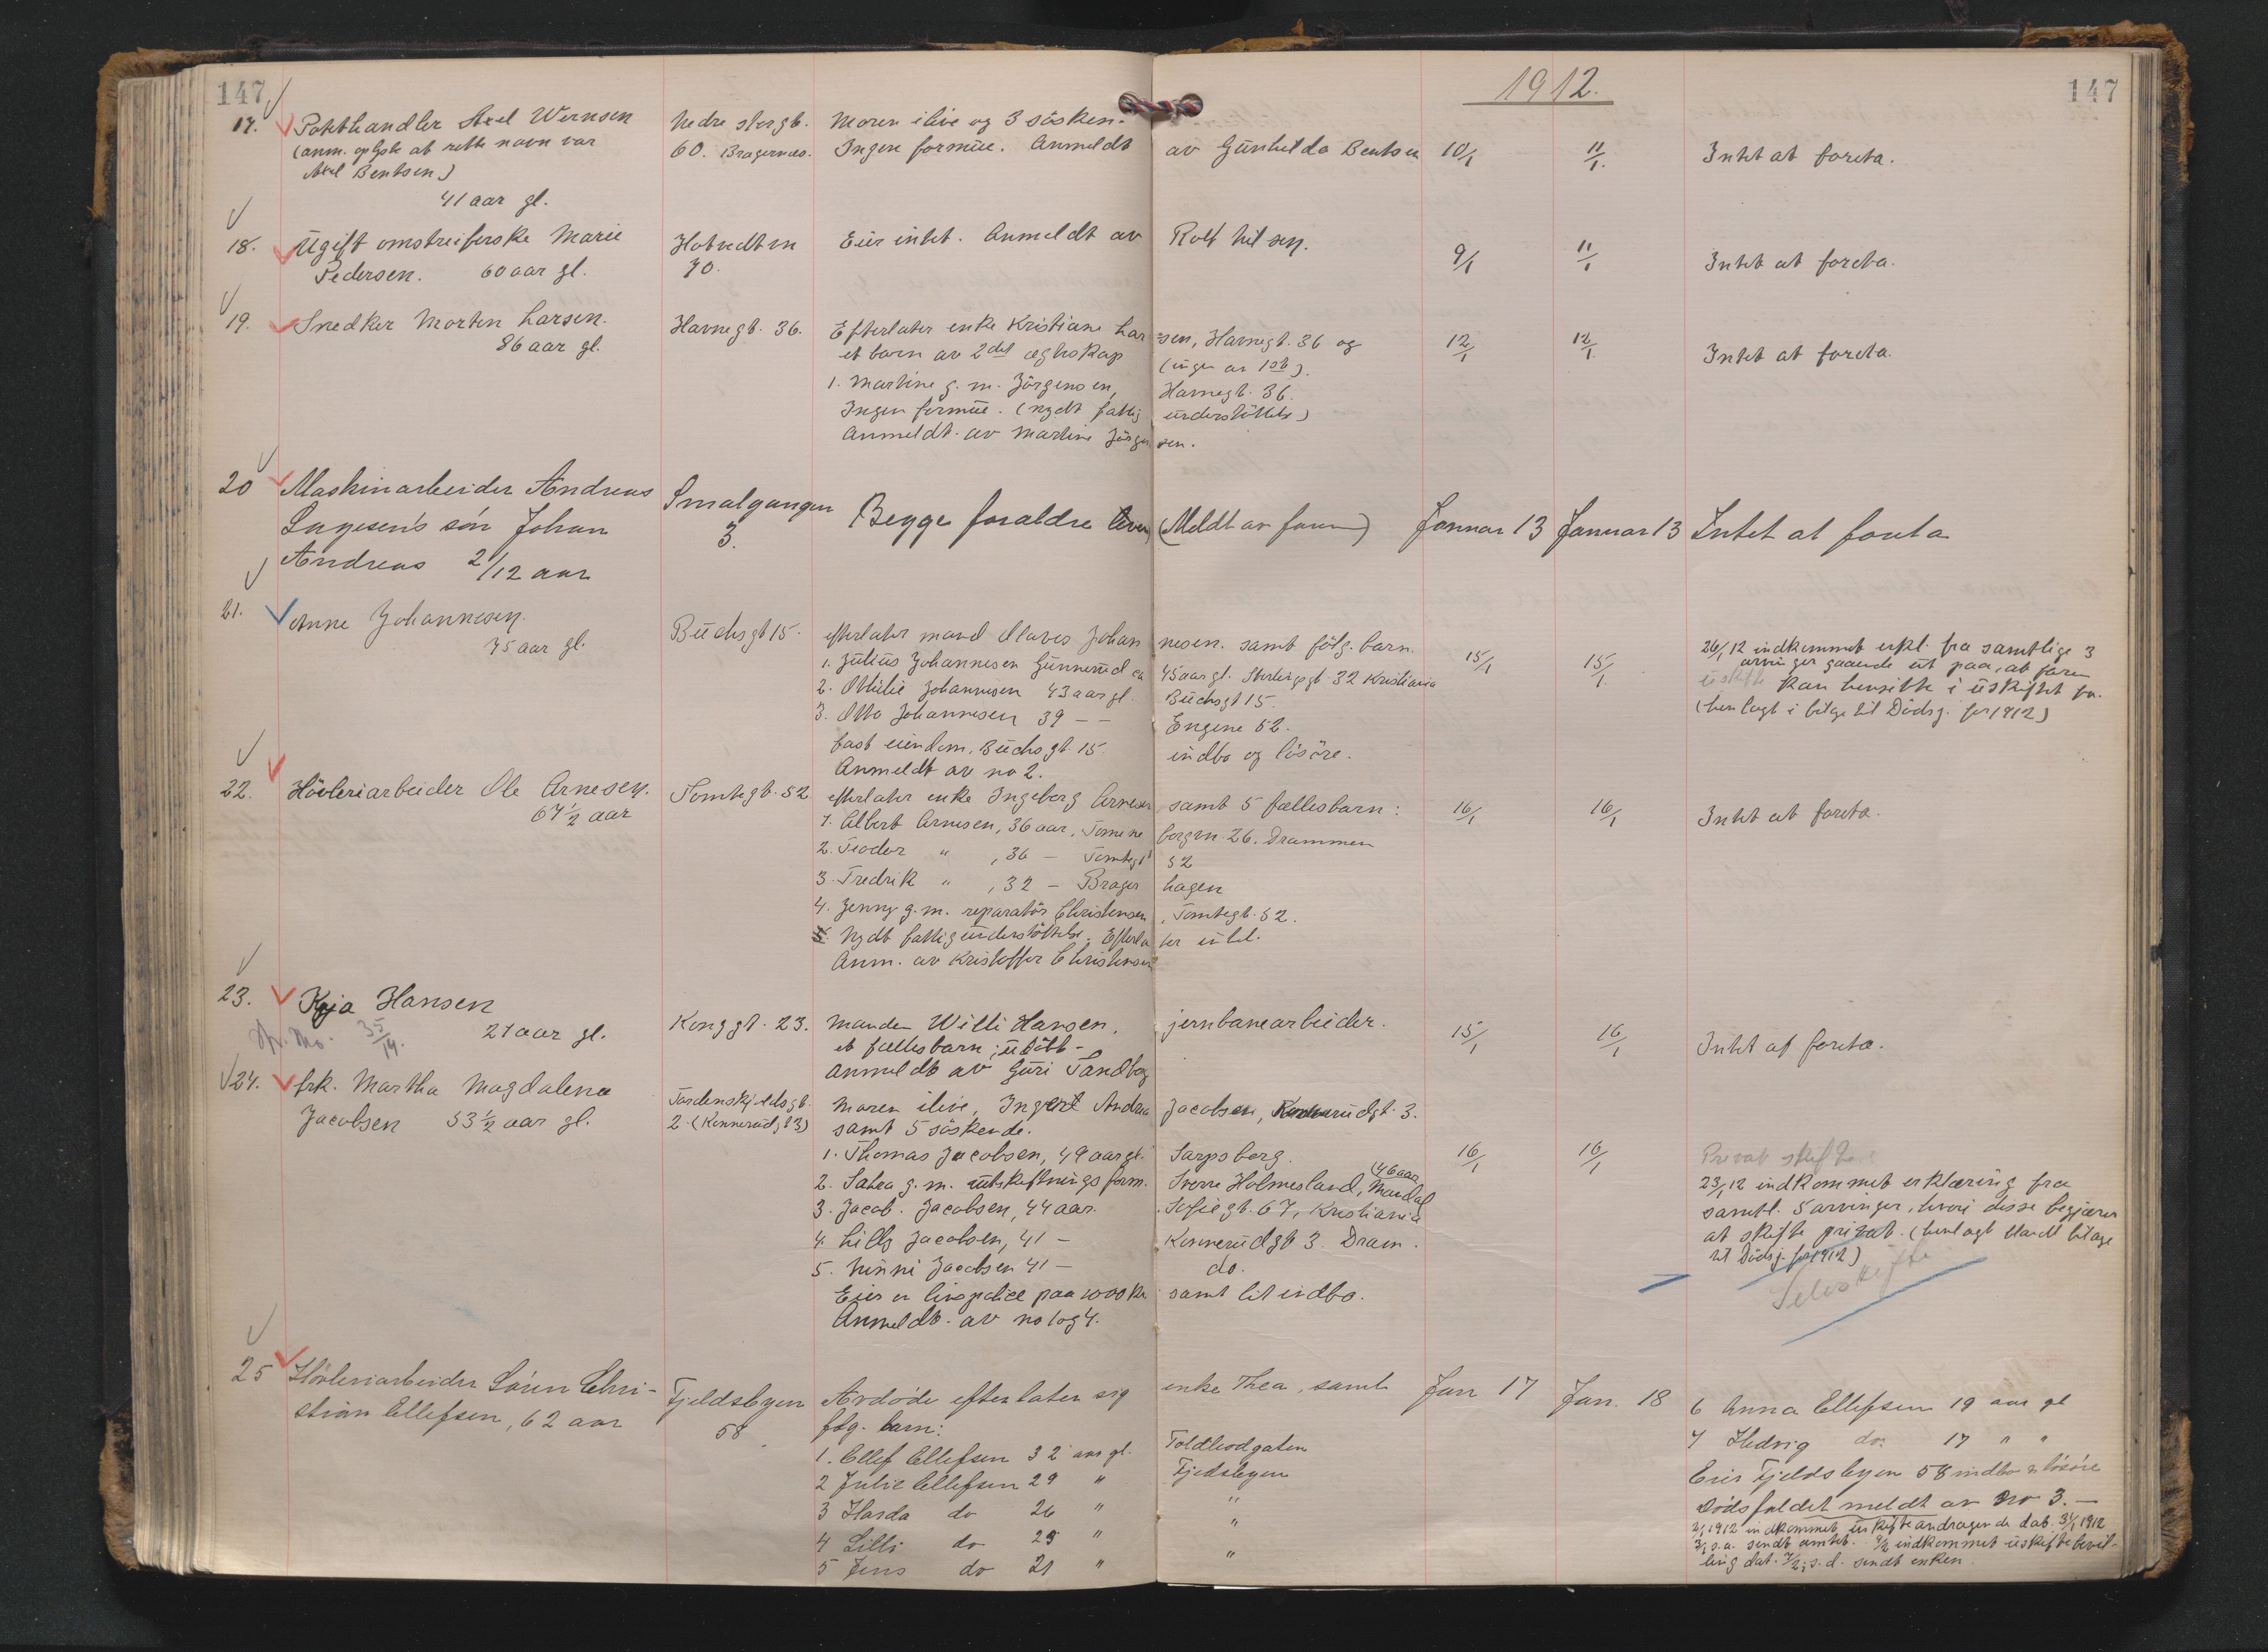 147
1912.
147
17. Pakhandler Axel Wernsen
(anm. oplyste at rette navn var
Axel Bentsen)
41 aar gl.
Nedre Storgt.
60. Bragernæs.
Moren ilive og 3 søsken.
Ingen formue. Anmeldt av Gunhilda Bentsen
10/1
11/1.
Intet at foreta.
18. Ugift omstreiferske Marie
Pedersen. 60 aar gl.
Hotvedtvn
70.
Eier intet. Anmeldt av Rolf Nilsen.
9/1
11/1
Intet at foreta.
19. Snedker Morten Larsen.
86 aar gl.
Havnegt. 36.
Efterlater enke Kristiane Larsen, Havnegt. 36 og
et barn av 2det ægteskap (ingen av 1ste).
1. Martine g. m. Jörgensen, Havnegt. 36.
Ingen formue. (nydt fattigunderstöttelse)
Anmeldt av Martine Jörgensen.
12/1
12/1.
Intet at foreta.
20 Maskinarbeider Andreas
sön Johan
Andreas 2/12 aar
Smalgangen
3.
Begge foraldre lever (Meldt av faren)
Januar 13
Januar 13
Intet at foreta
21. Anne Johannesen.
75 aar gl.
Buchsgt 15.
efterlater mand Olaves Johannesen. samt fölg. barn.
1. Julius Johannesen Gunnerud ca 45 aar gl. gt 32 Kristiania
2. Othilie Johannesen 43 aar gl. Buchsgt 15.
3. Otto Johannesen 39 — — Engene 52.
fast eiendom, Buchsgt. 15. indbo og lösöre.
Anmeldt av no 2.
15/1
15/1.
26/1 12 indkommet erkl. fra samtlige 3
arvinger gaaende ut paa, at faren
uskifte kan hensitte i uskiftet bo.
(henlagt i bilage til Dödsj. for 1912)
22. Hövleriarbeider Ole Arnesen.
67½ aar
Tomtegt. 52
efterlater enke Ingeborg Arnesen samt 5 fællesbarn:
1. Albert Arnesen, 36 aar, bergvn. 26. Drammen
2. Teodor " , 36 — Tomtegt 52
3. Fredrik " , 32 — Bragerhagen
4. Jenny g. m. reparatör Christensen, Tomtegt. 52.
5. Nydt fattigunderstöttelse. Efterlater intet.
Anm. av Kristoffer Christensen
16/1
16/1
Intet at foreta.
23. Kaja Hansen
21 aar gl.
Konggt. 23.
manden Willi Hansen, jernbanearbeider.
et fællesbarn; udöbt —
Anmeldt av Guri Sandberg
15/1
16/1
Intet at foreta.
24. frk. Martha Magdalena
Jacobsen 53½ aar gl.
Tordenskjoldsgt.
2. (Konnerudgt 3)
Moren ilive, Ingert Andrea Jacobsen, Konnerudgt. 3.
samt 5 söskende.
1. Thomas Jacobsen, 49 aar gl. Sarpsborg.
2. Satea g. m. utskiftningsform. Sverre Holmesland, Mandal (46 aar
3. Jacob Jacobsen, 44 aar. Sofiegt. 67, Kristiania
4. Lilly Jacobsen, 41 — Konnerudgt 3. Dram.
5. Ninni Jacobsen 41 — do.
Eier en livspolice paa 1000 kr samt lit indbo.
Anmeldt av no 1 og 4.
16/1
16/1
Privat skifte
23/1 12 indkommet erklæring fra
samtl. 5 arvinger, hvori disse begjærer
at skifte privat. (henlagt blandt bilage
til Dödsj. for 1912)
Selvskifte
25 Hövleriarbeider Sören Chri-
stian Ellefsen, 62 aar
Fjeldsbyen
58
Avdöde efterlater sig enke Thea, samt
fölg. barn:
1. Ellef Ellefsen 32 aar gl. Toldbodgaten
2 Julie Ellefsen 29 " Fjeldsbyen
3 Harda do 26 " "
4 Lilli do 23 " "
5 Jens do 21 " "
Jan 17
Jan. 18
6 Anna Ellefsen 19 aar gl
7 Hedvig do. 17 " "
Eier Fjeldsbyen 58 indbo & lösöre
Dödsfaldet meldt av No 3. —
2/1 1912 indkommet uskifteandragende dat. 31/1 1912
3/1 s.a. sendt amtet. 9/2 indkommet uskiftebevil-
ling dat. 7/2; s. d. sendt enken.